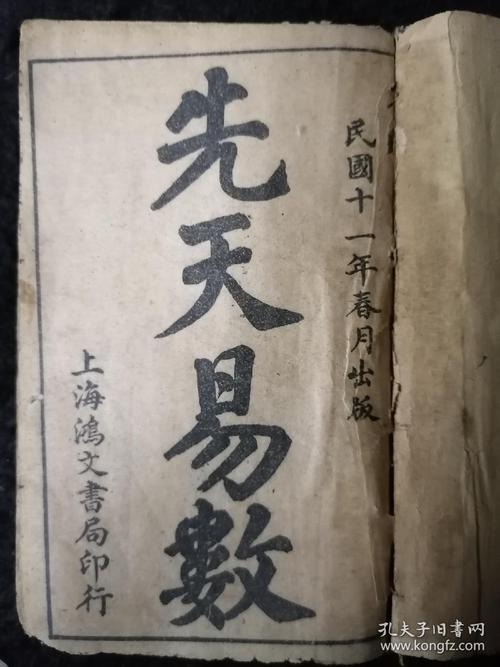 民國十一年春月出版
先天易數
上海鴻文書局印行
孔夫子旧书网
www.kongfz.com